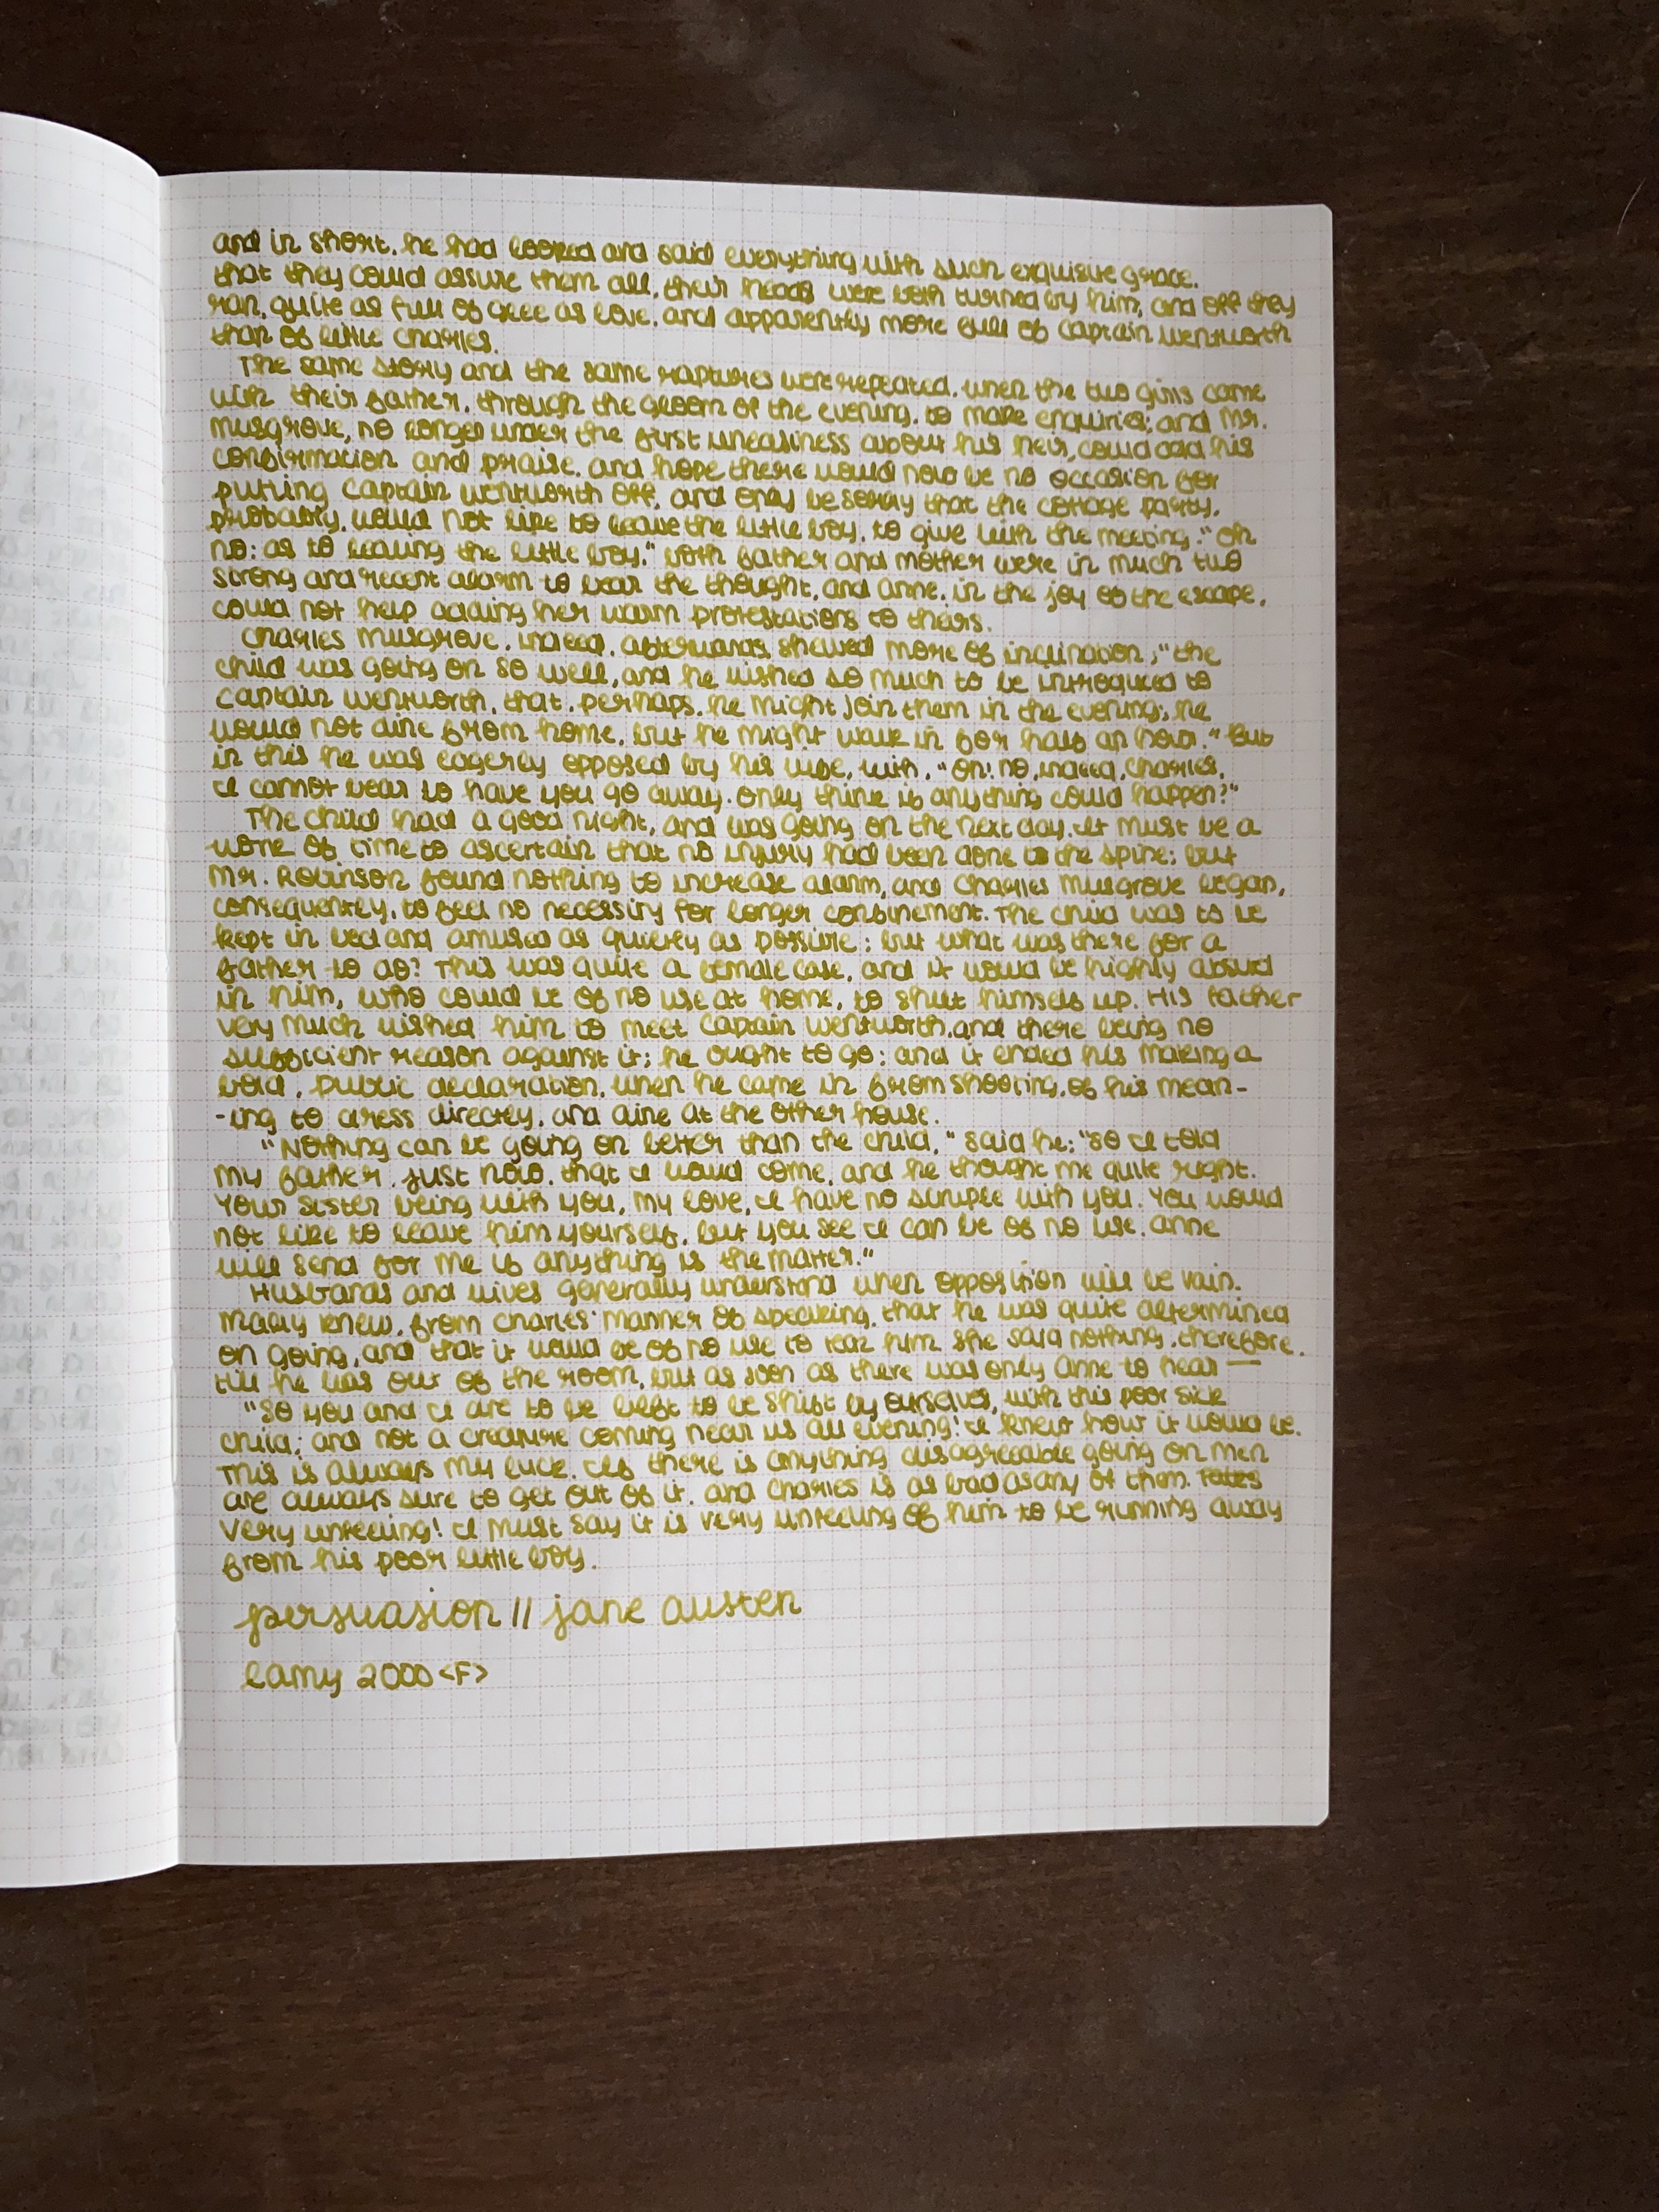 and in short, he had looked and said everything with such exquisite grace,
that they could assure them all, their heads were both turned by him, and off they
ran, quite as full of glee as love, and apparently more full of Captain Wentworth
than of little Charles.
The same story and the same raptures were repeated, when the two girls came
with their father, through the gloom of the evening, to make enquiries; and Mr.
Musgrove, no longer under the first uneasiness about his heir, could add his
confirmation and praise, and hope there would now be no occasion for
putting Captain Wentworth off, and only be sorry that the cottage party,
probably, would not like to leave the little boy, to give with the meeting. "Oh
no: as to leaving the little boy." both father and mother were in much two
strong and recent alarm to bear the thought, and anne, in the joy of the escape,
could not help adding her warm protestations to theirs.
Charles Musgrove, indeed, afterwards, shewed more of inclination; "the
child was going on so well, and he wished so much to be introduced to
Captain Wentworth, that, perhaps, he might join them in the evening; he
would not dine from home, but he might walk in for half an hour." But
in this he was eagerly opposed by his wife, with, "Oh! no, indeed, Charles,
I cannot bear to have you go away. Only think if anything could happen?"
The child had a good night, and was going on the next day. It must be a
work of time to ascertain that no injury had been done to the spine; but
Mr. Robinson found nothing to increase alarm, and Charles Musgrove began,
consequently, to feel no necessity for longer confinement. The child was to be
kept in bed and amused as quietly as possible; but what was there for a
father to do? This was quite a female case, and it would be highly absurd
in him, who could be of no use at home, to shut himself up. His father
very much wished him to meet Captain Wentworth, and there being no
sufficient reason against it; he ought to go; and it ended his making a
bold, public declaration, when he came in from shooting, of his mean-
-ing to dress directly, and dine at the other house.
"Nothing can be going on better than the child," said he; "so I told
my father, just now, that I would come, and he thought me quite right.
Your sister being with you, my love, I have no scruple with you. You would
not like to leave him yourself, but you see I can be of no use. Anne
will send for me if anything is the matter."
Husbands and wives generally understand when opposition will be vain.
Mary knew, from Charles' manner of speaking, that he was quite determined
on going, and that it would be of no use to tear him. She said nothing, therefore,
till he was out of the room, but as soon as there was only Anne to hear—
"So you and I are to be left to be shift by ourselves, with this poor sick
child; and not a creature coming near us all evening! I knew how it would be.
This is always my luck. If there is anything disagreeable going on men
are always sure to get out of it, and Charles is as bad as any of them.
Very unfeeling! I must say it is very unfeeling of him to be running away
from his poor little boy.
persuasion // jane austen
lamy 2000 <F>